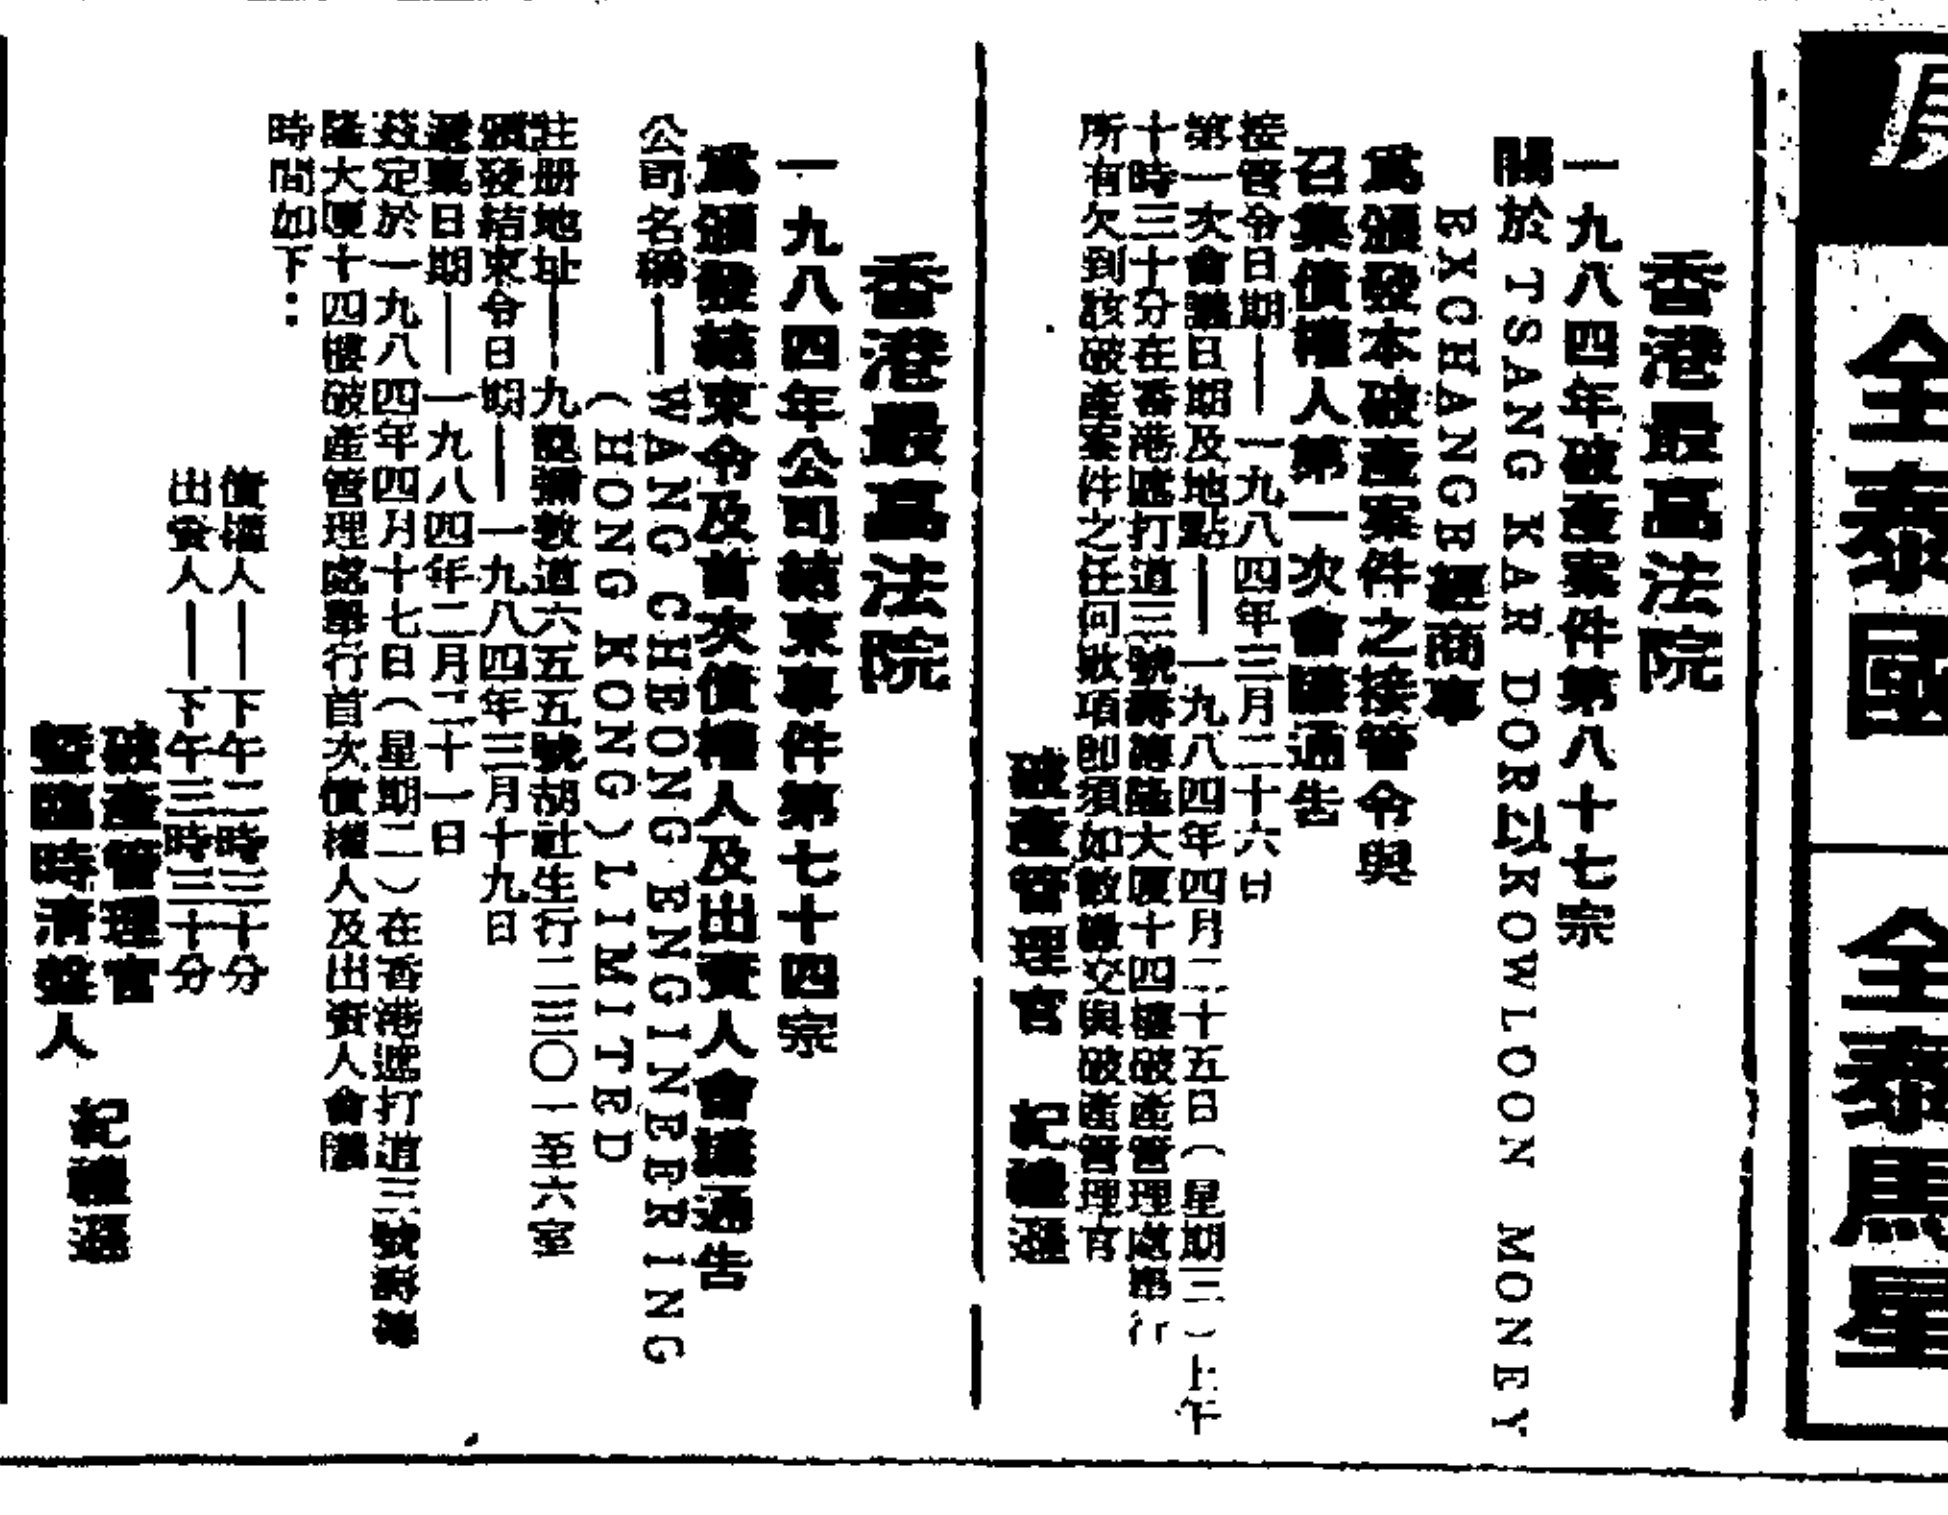 全泰國
全泰馬星
香港最高法院
一九八四年破產案件第八十七宗
關於 TSANG KAR DOR 以 KOWLOON MONEY
EXCHANGE 經商事
爲頒發本破產案件之接管令與
召集債權人第一次會議通告
接管令日期——一九八四年三月二十六日
第一次會議日期及地點——一九八四年四月二十五日(星期三)上午
十時三十分在香港遮打道三號壽德隆大廈十四樓破產管理處舉行
所有欠到該破產案件之任何款項即須如數繳交與破產管理官
破產管理官 紀禮遜
香港最高法院
一九八四年公司結束事件第七十四宗
爲頒發結束令及首次債權人及出資人會議通告
公司名稱——WANG CHEONG ENGINEERING
(HONG KONG) LIMITED
註册地址——九龍彌敦道六五五號胡社生行一三〇一至六室
頒發結束令日期——一九八四年三月十九日
遞禀日期——一九八四年二月二十一日
茲定於一九八四年四月十七日(星期二)在香港遮打道三號壽德
隆大廈十四樓破產管理處舉行首次債權人及出資人會議
時間如下:
債權人——下午二時三十分
出資人——下午三時三十分
破產管理官
暨臨時清盤人 紀禮遜